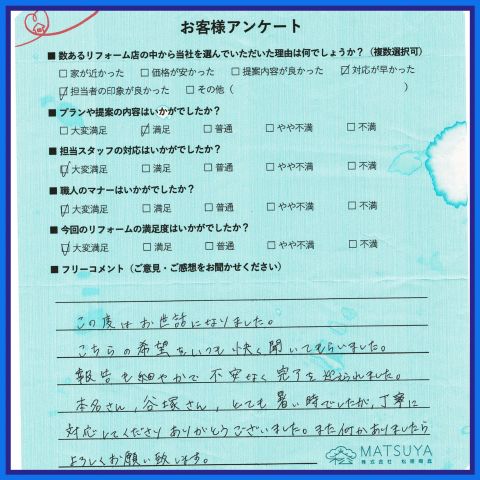 お客様アンケート
■ 数あるリフォーム店の中から当社を選んでいただいた理由は何でしょうか？（複数選択可）
□ 家が近かった　□ 価格が安かった　□ 提案内容が良かった　☑ 対応が早かった
☑ 担当者の印象が良かった　□ その他（　　　）
■ プランや提案の内容はいかがでしたか？
□ 大変満足　☑ 満足　□ 普通　□ やや不満　□ 不満
■ 担当スタッフの対応はいかがでしたか？
☑ 大変満足　□ 満足　□ 普通　□ やや不満　□ 不満
■ 職人のマナーはいかがでしたか？
☑ 大変満足　□ 満足　□ 普通　□ やや不満　□ 不満
■ 今回のリフォームの満足度はいかがでしたか？
☑ 大変満足　□ 満足　□ 普通　□ やや不満　□ 不満
■ フリーコメント（ご意見・ご感想をお聞かせください）
この度はお世話になりました。
こちらの希望をいつも快く聞いてもらいました。
報告も細やかで不安なく完了を迎えられました。
本名さん、谷塚さん、とても暑い時でしたが、丁寧に
対応してくださりありがとうございました。また何かありましたら
よろしくお願い致します。
MATSUYA
株式会社